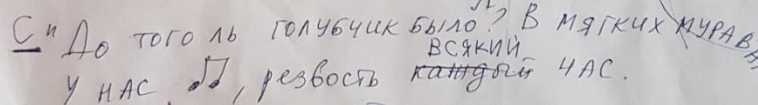 С" До того ль голубчик было? В мягких мурава
всякий
у нас, резвость каждый час.